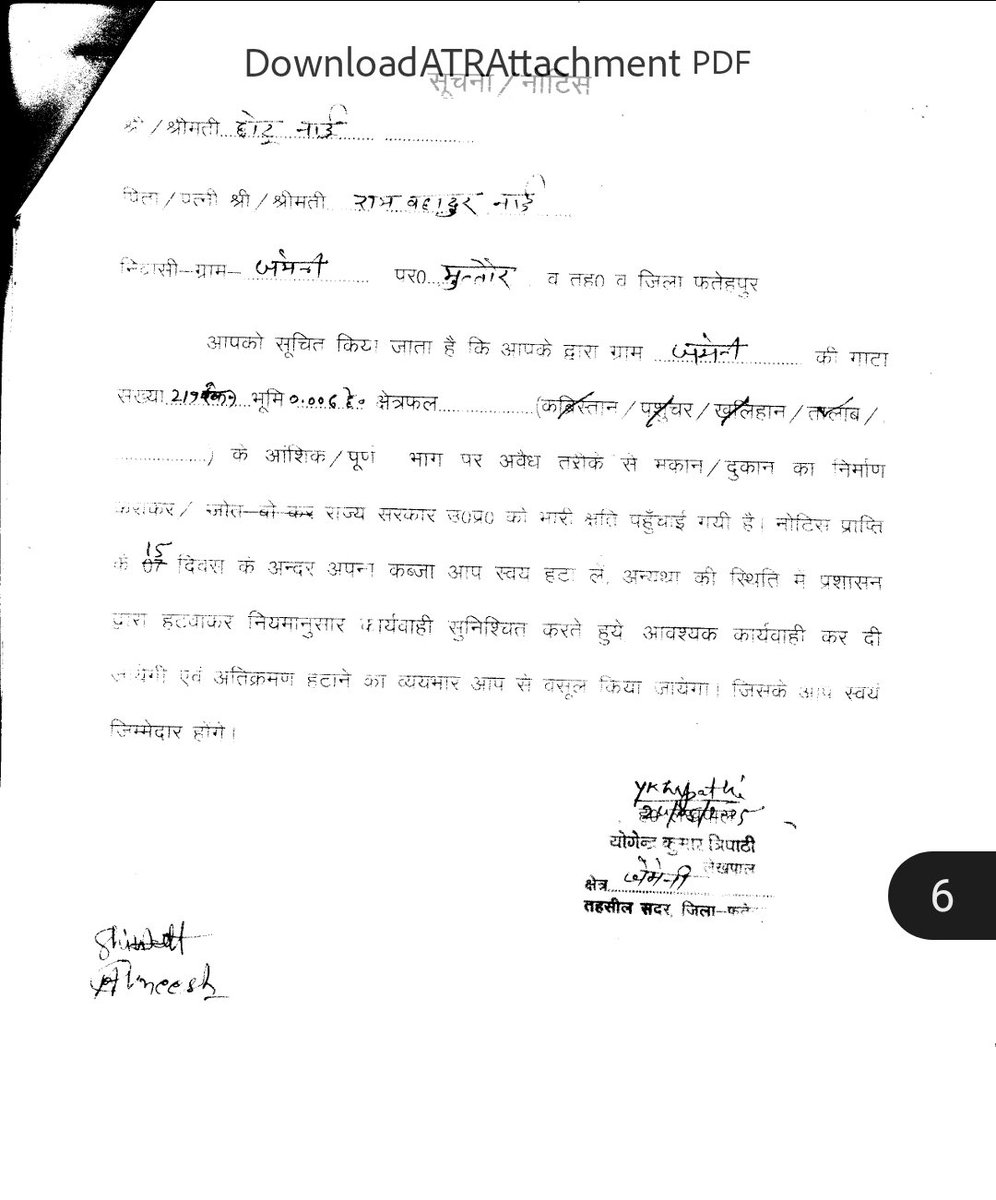 DownloadATRAttachment PDF
सूचना / नोटिस
श्री / श्रीमती छोटू नाई
पिता / पत्नी श्री / श्रीमती राम बहादुर नाई
निवासी–ग्राम– जमेनी पर० मुत्तौर व तह० व जिला फतेहपुर
आपको सूचित किया जाता है कि आपके द्वारा ग्राम जमेनी की गाटा
संख्या 219 भूमि 0.006 हे० क्षेत्रफल (कब्रिस्तान / पशुचर / खलिहान / तालाब /
) के आंशिक / पूर्ण भाग पर अवैध तरीके से मकान / दुकान का निर्माण
कराकर / जोत–बो कर राज्य सरकार उ०प्र० को भारी क्षति पहुँचाई गयी है। नोटिस प्राप्ति
के 07 15 दिवस के अन्दर अपना कब्जा आप स्वयं हटा लें, अन्यथा की स्थिति में प्रशासन
द्वारा हटवाकर नियमानुसार कार्यवाही सुनिश्चित करते हुये आवश्यक कार्यवाही कर दी
जायेगी एवं अतिक्रमण हटाने का व्ययभार आप से वसूल किया जायेगा। जिसके आप स्वयं
जिम्मेदार होंगे।
YKTripathi
योगेन्द्र कुमार त्रिपाठी
लेखपाल
क्षेत्र जमेनी
तहसील सदर, जिला–फते
6